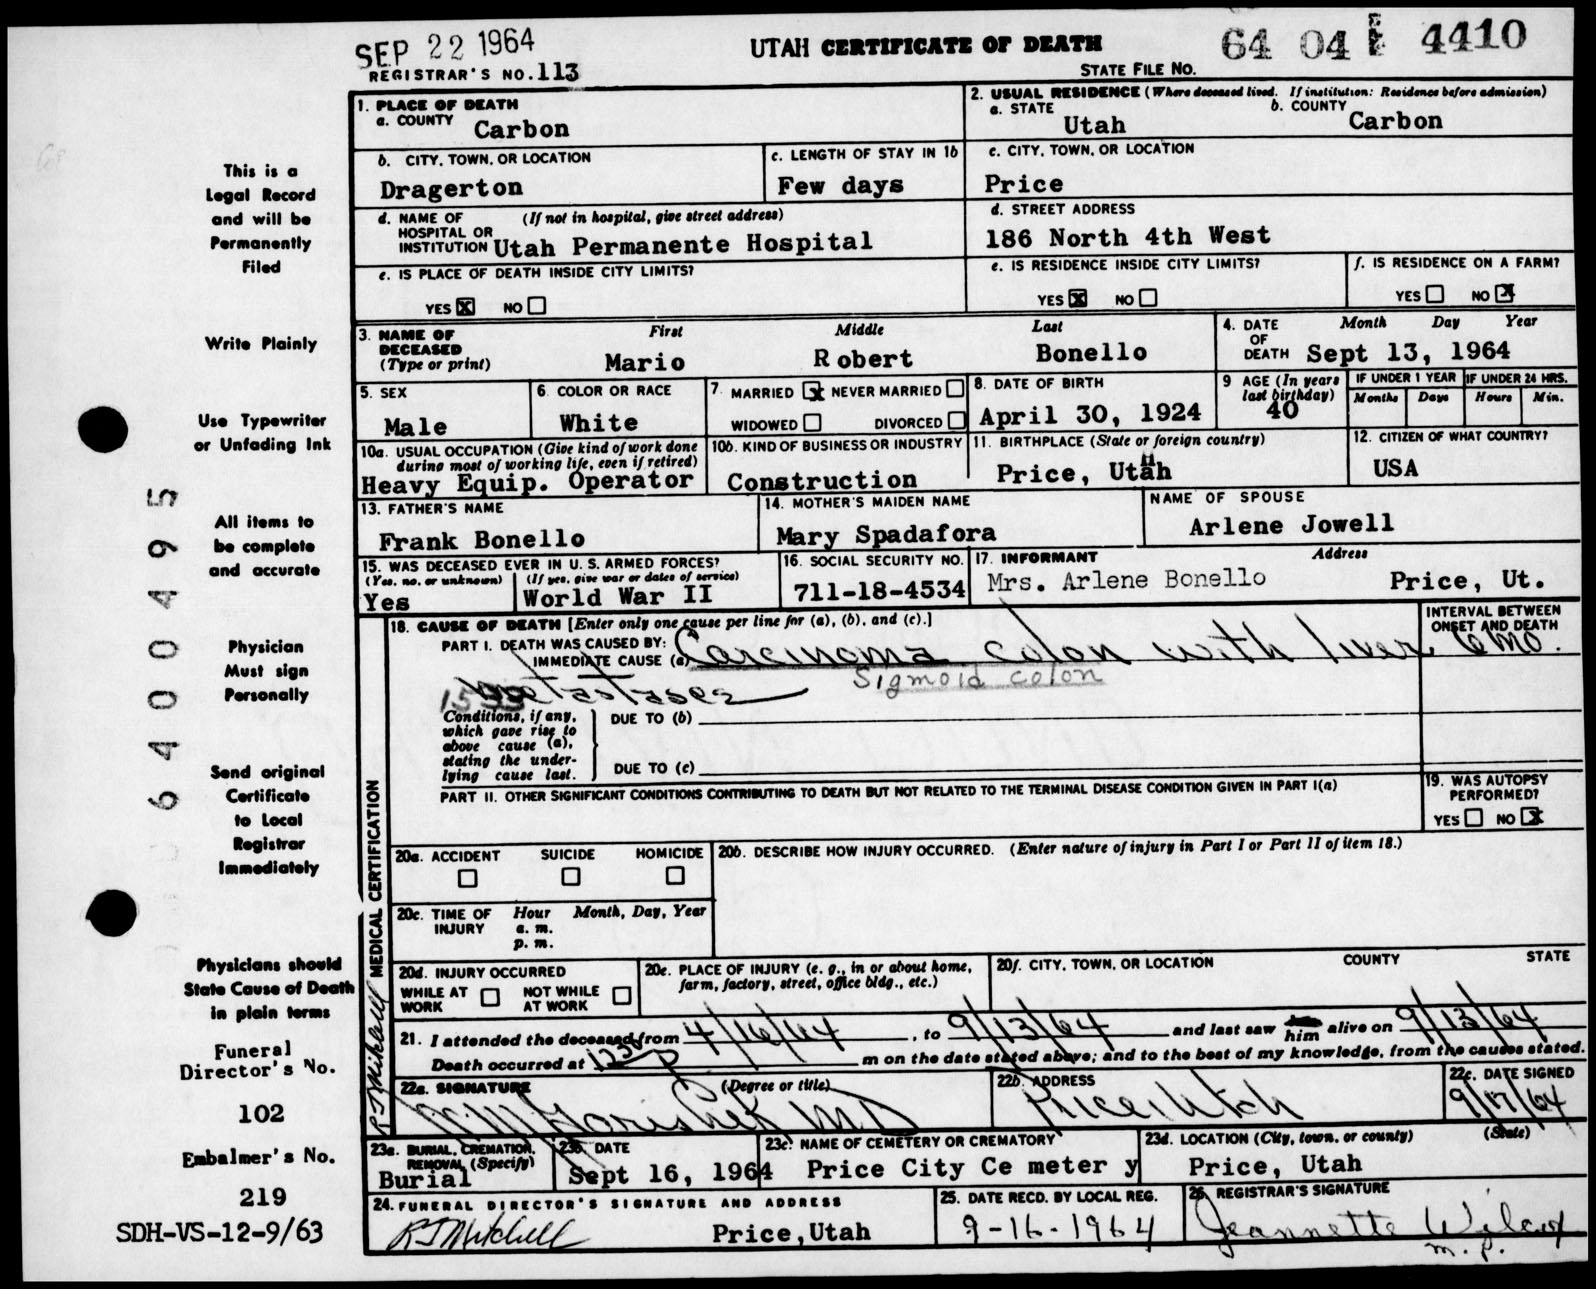 SEP 22 1964
UTAH CERTIFICATE OF DEATH
64 04 4410
REGISTRAR'S NO. 113
STATE FILE NO.
This is a
Legal Record
and will be
Permanently
Filed
Write Plainly
Use Typewriter
or Unfading Ink
All items to
be complete
and accurate
Physician
Must sign
Personally
Send original
Certificate
to Local
Registrar
Immediately
Physicians should
State Cause of Death
in plain terms
Funeral
Director's No.
102
Embalmer's No.
219
SDH-VS-12-9/63
64004995
1. PLACE OF DEATH
a. COUNTY Carbon
2. USUAL RESIDENCE (Where deceased lived. If institution: Residence before admission)
a. STATE Utah
b. COUNTY Carbon
b. CITY, TOWN, OR LOCATION
Dragerton
c. LENGTH OF STAY IN 1b
Few days
c. CITY, TOWN, OR LOCATION
Price
d. NAME OF HOSPITAL OR INSTITUTION (If not in hospital, give street address)
Utah Permanente Hospital
d. STREET ADDRESS
186 North 4th West
e. IS PLACE OF DEATH INSIDE CITY LIMITS?
YES X NO
e. IS RESIDENCE INSIDE CITY LIMITS?
YES X NO
f. IS RESIDENCE ON A FARM?
YES NO X
3. NAME OF DECEASED (Type or print)
First Middle Last
Mario Robert Bonello
4. DATE OF DEATH
Month Day Year
Sept 13, 1964
5. SEX
Male
6. COLOR OR RACE
White
7. MARRIED X NEVER MARRIED
WIDOWED DIVORCED
8. DATE OF BIRTH
April 30, 1924
9 AGE (In years last birthday)
40
IF UNDER 1 YEAR
Months Days
IF UNDER 24 HRS.
Hours Min.
10a. USUAL OCCUPATION (Give kind of work done during most of working life, even if retired)
Heavy Equip. Operator
10b. KIND OF BUSINESS OR INDUSTRY
Construction
11. BIRTHPLACE (State or foreign country)
Price, Utah
12. CITIZEN OF WHAT COUNTRY?
USA
13. FATHER'S NAME
Frank Bonello
14. MOTHER'S MAIDEN NAME
Mary Spadafora
NAME OF SPOUSE
Arlene Jowell
15. WAS DECEASED EVER IN U. S. ARMED FORCES?
(Yes, no, or unknown) (If yes, give war or dates of service)
Yes World War II
16. SOCIAL SECURITY NO.
711-18-4534
17. INFORMANT Address
Mrs. Arlene Bonello Price, Ut.
MEDICAL CERTIFICATION
18. CAUSE OF DEATH [Enter only one cause per line for (a), (b), and (c).]
INTERVAL BETWEEN ONSET AND DEATH
PART I. DEATH WAS CAUSED BY:
IMMEDIATE CAUSE (a) Carcinoma colon with liver 6 mo.
metastases
Sigmoid colon
1533
Conditions, if any, which gave rise to above cause (a), stating the underlying cause last.
DUE TO (b)
DUE TO (c)
PART II. OTHER SIGNIFICANT CONDITIONS CONTRIBUTING TO DEATH BUT NOT RELATED TO THE TERMINAL DISEASE CONDITION GIVEN IN PART I(a)
19. WAS AUTOPSY PERFORMED?
YES NO X
20a. ACCIDENT SUICIDE HOMICIDE
20b. DESCRIBE HOW INJURY OCCURRED. (Enter nature of injury in Part I or Part II of item 18.)
20c. TIME OF INJURY Hour Month, Day, Year
a. m.
p. m.
20d. INJURY OCCURRED
WHILE AT WORK NOT WHILE AT WORK
20e. PLACE OF INJURY (e. g., in or about home, farm, factory, street, office bldg., etc.)
20f. CITY, TOWN, OR LOCATION COUNTY STATE
21. I attended the deceased from 4/16/64, to 9/13/64 and last saw him alive on 9/13/64
Death occurred at m on the date stated above; and to the best of my knowledge, from the causes stated.
22a. SIGNATURE (Degree or title)
MD
22b. ADDRESS
Price, Utah
22c. DATE SIGNED
9/17/64
23a. BURIAL, CREMATION, REMOVAL (Specify)
Burial
23b. DATE
Sept 16, 1964
23c. NAME OF CEMETERY OR CREMATORY
Price City Ce meter y
23d. LOCATION (City, town, or county) (State)
Price, Utah
24. FUNERAL DIRECTOR'S SIGNATURE AND ADDRESS
R J Mitchell Price, Utah
25. DATE RECD. BY LOCAL REG.
9-16-1964
26. REGISTRAR'S SIGNATURE
Jeannette Wilcox
m. p.